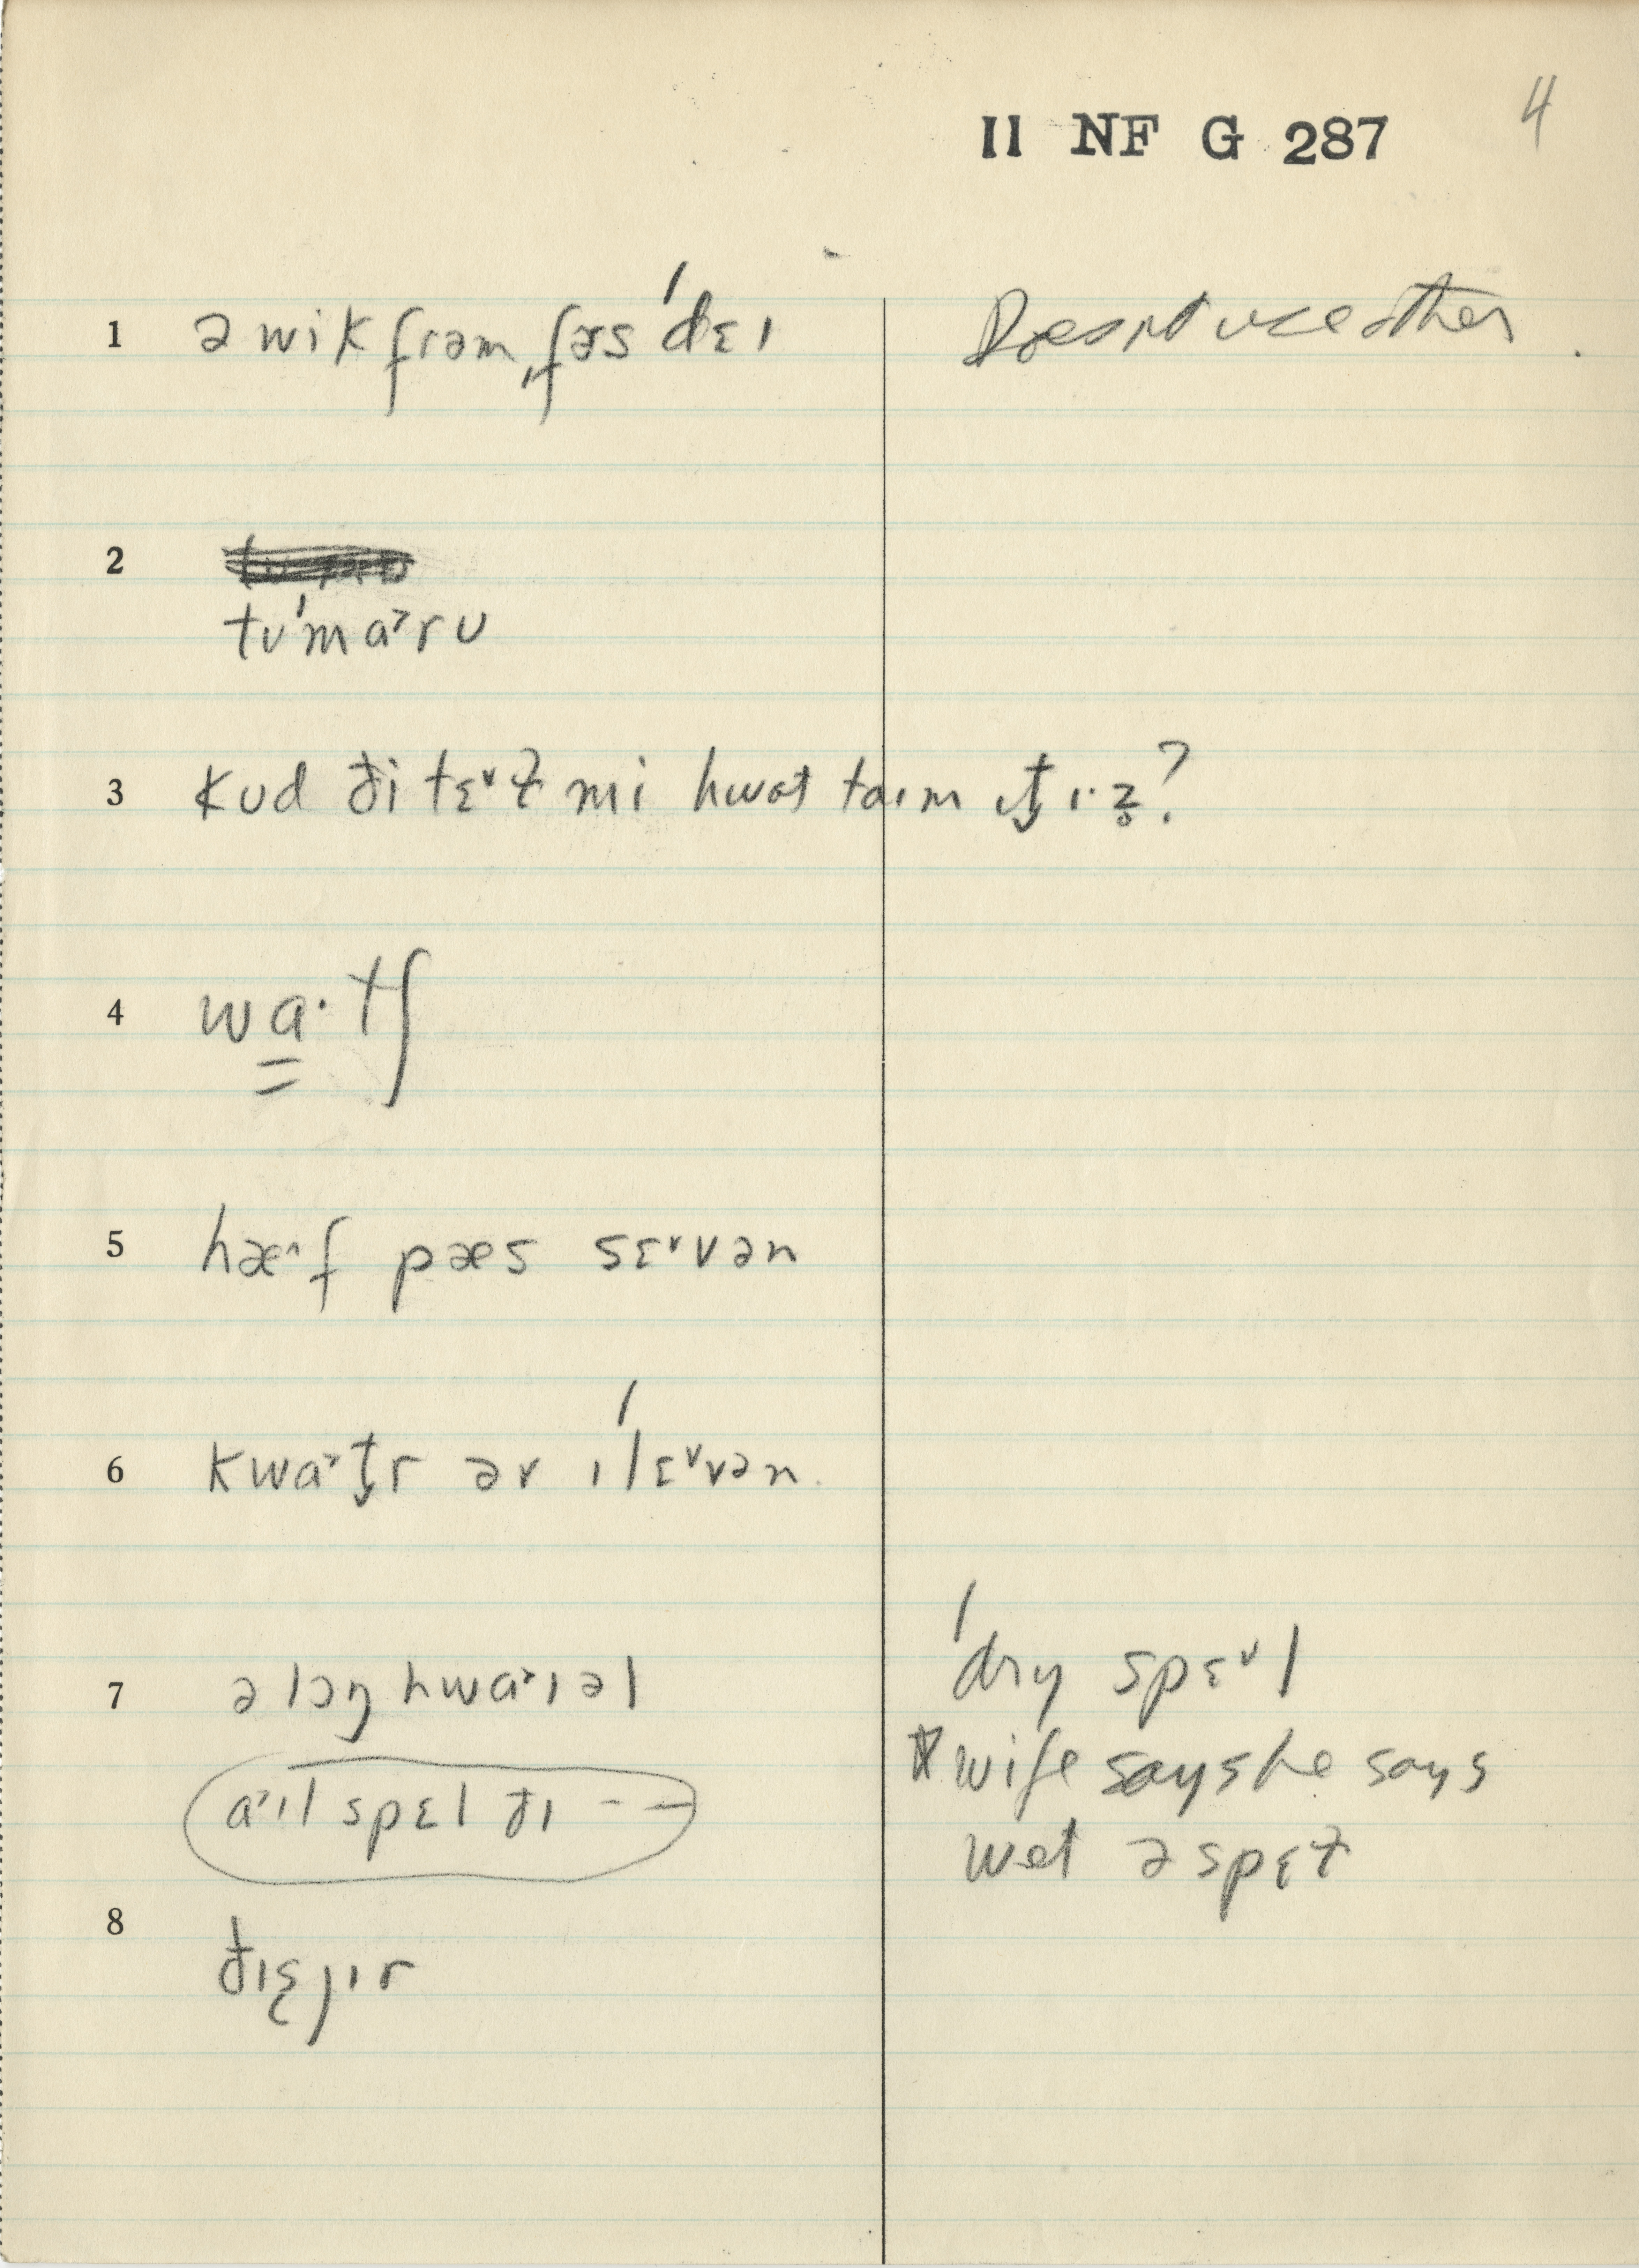 II NF G 287 4
1 ə wik frəm ˌfɚs ˈdɛɪ Does not use other.
2 tʊˈmɑ˃rʊ
3 kʊd ði tɛ˅ɫ mi hwɑt taɪm ɪt̬ ɪ·z̥?
4 wɑ̳·tʃ
5 hæ˄f pæs sɛ˅vən
6 kwɑ˃t̬r əv ɪˈlɛ˅vən
7 ə lɔŋ hwɑ˃ɪəl ˈdry spɛ˅l
ɑ˃ɪl spɛl ðɪ – – wife says he says
wet ə spɛɫ
8 ðɪʂ jɪr